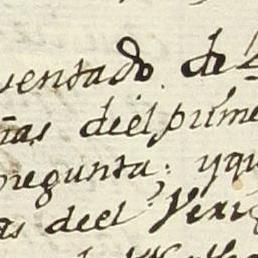 sentado. de
ñas deel prime
pregunta: yqu
as deel Veri